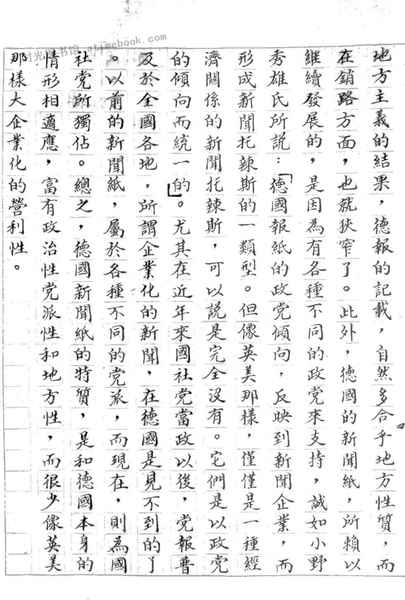 地方主義的結果，德報的記載，自然多合乎地方性質，而
在銷路方面，也就狹窄了。此外，德國的新聞紙，所賴以
継續發展的，是因為有各種不同的政党來支持，誠如小野
秀雄氏所說：「德國報紙的政党傾向，反映到新聞企業，而
形成新聞托辣斯的一類型。但像英美那樣，僅僅是一種經
濟關係的新聞托辣斯，可以說是完全沒有。它們是以政党
的傾向而統一的」。尤其在近年來國社党當政以後，党報普
及於全國各地，所謂企業化的新聞，在德國是見不到的了
。以前的新聞紙，屬於各種不同的党派，而現在，則為國
社党所獨佔。總之，德國新聞紙的特質，是和德國本身的
情形相適應，富有政治性党派性和地方性，而很少像英美
那樣大企業化的營利性。